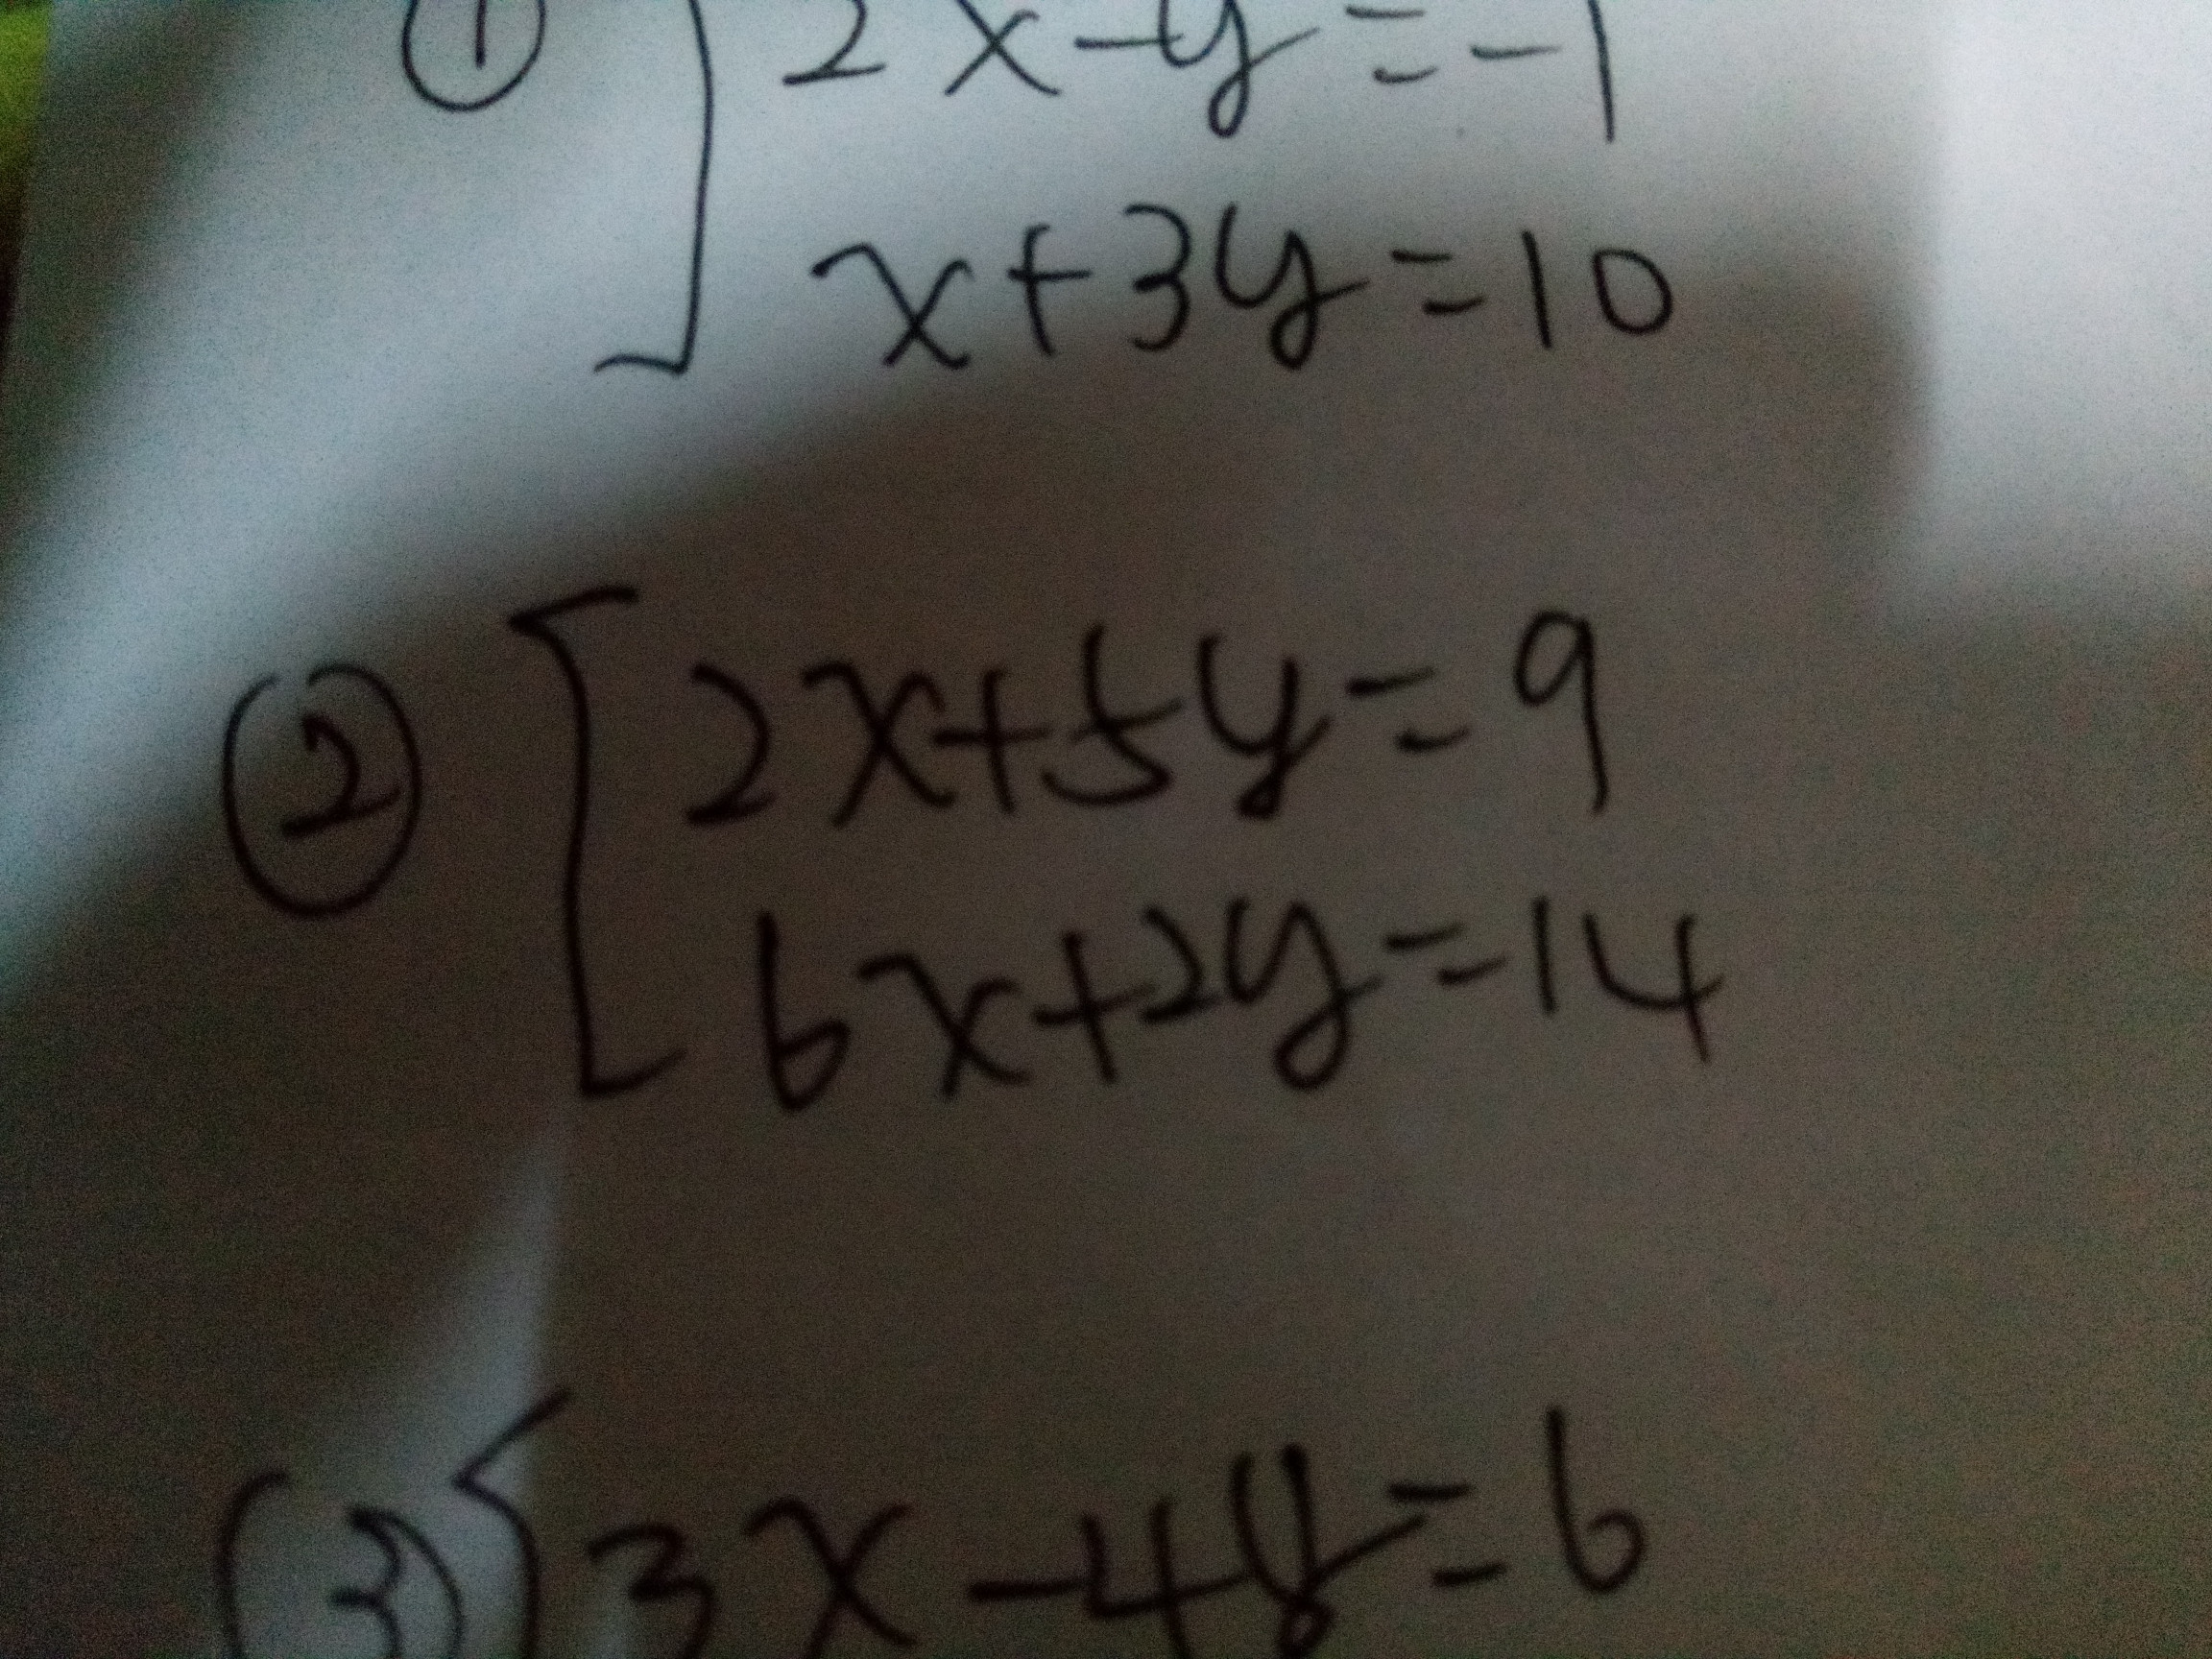 ① 2x-y=-1
x+3y=10
② 2x+5y=9
6x+2y=14
③ 3x-4y=6